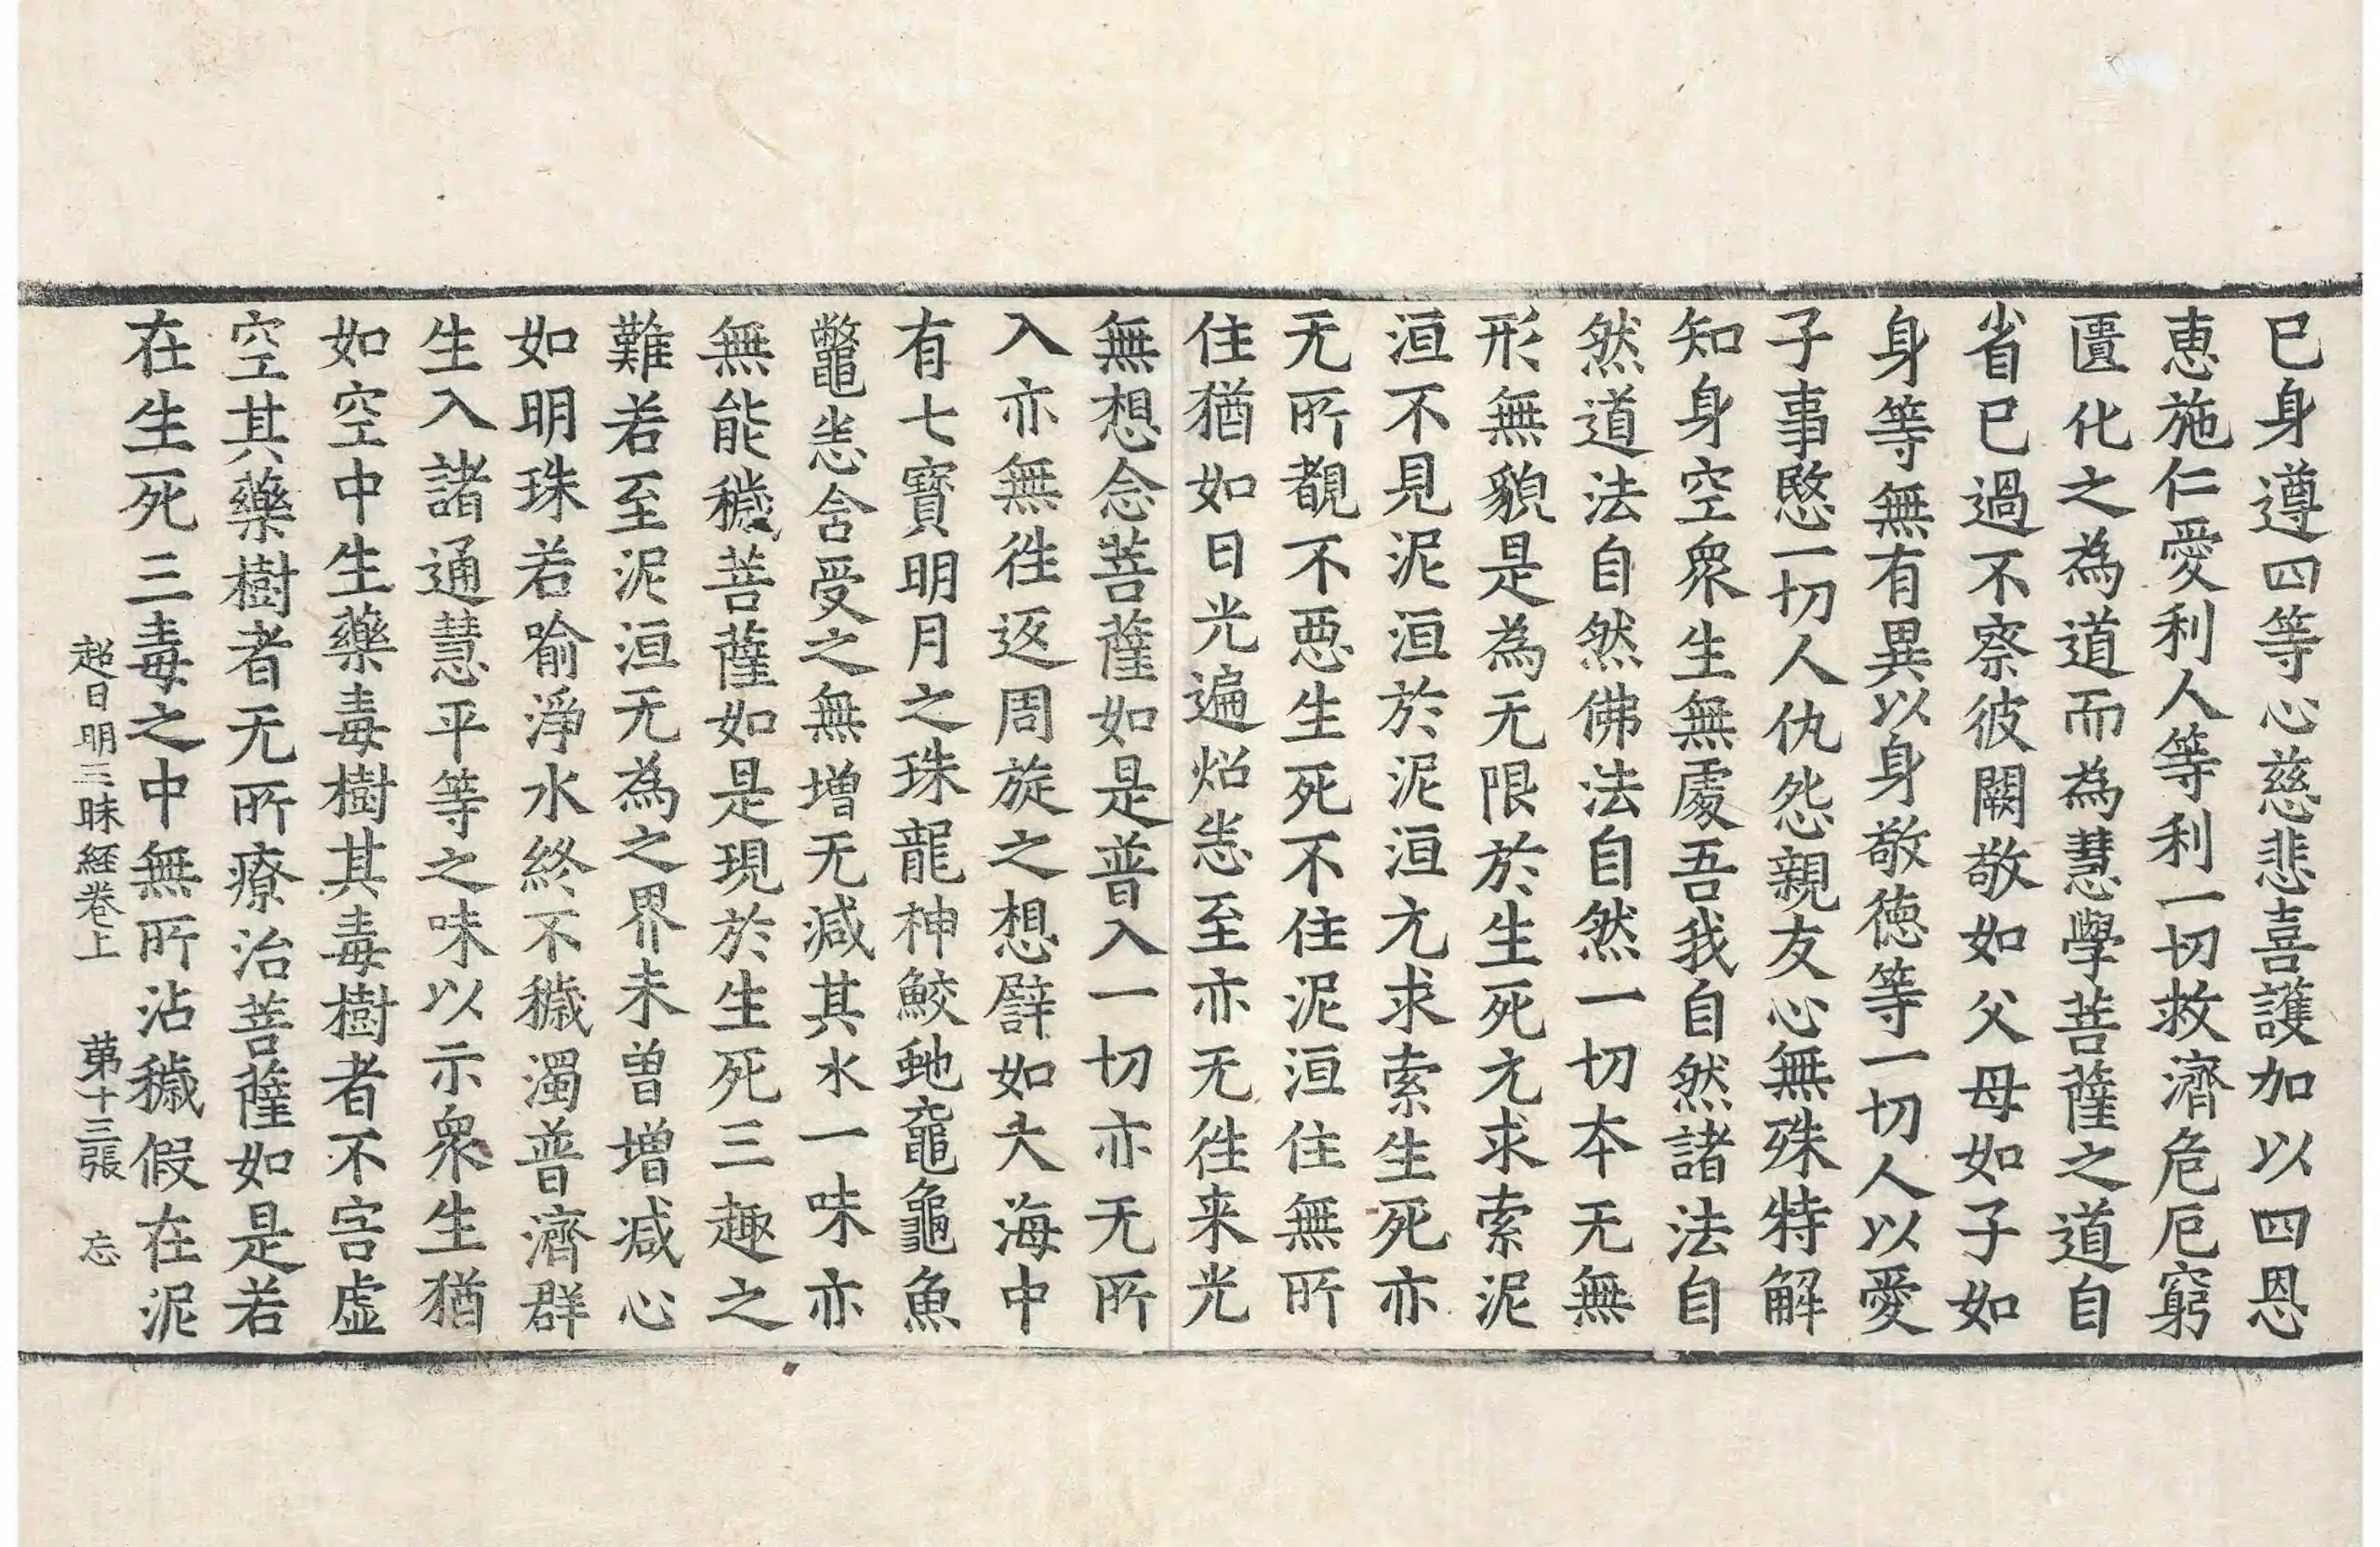 已身遵四等心慈悲喜護加以四恩
恵施仁愛利人等利一切救濟危厄窮
匱化之為道而為慧學菩薩之道自
省已過不察彼闕敬如父母如子如
身等無有異以身敬德等一切人以愛
子事愍一切人仇怨親友心無殊特解
知身空衆生無處吾我自然諸法自
然道法自然佛法自然一切本无無
形無貌是為无限於生死亢求索泥
洹不見泥洹於泥洹亢求索生死亦
无所覩不惡生死不住泥洹住無所
住猶如日光遍炤恙至亦无徃来光
無想念菩薩如是普入一切亦无所
入亦無徃返周旋之想譬如大海中
有七寶明月之珠龍神鮫虵鼋龜魚
鼈黽恙含受之無增无減其水一味亦
無能穢菩薩如是現於生死三趣之
難若至泥洹无為之界未曾增减心
如明珠若喻淨水終不穢濁普濟群
生入諸通慧平等之味以示衆生猶
如空中生藥毒樹其毒樹者不害虛
空其藥樹者无所療治菩薩如是若
在生死三毒之中無所沾穢假在泥
超日明三昧経巻上 第十三張 忘